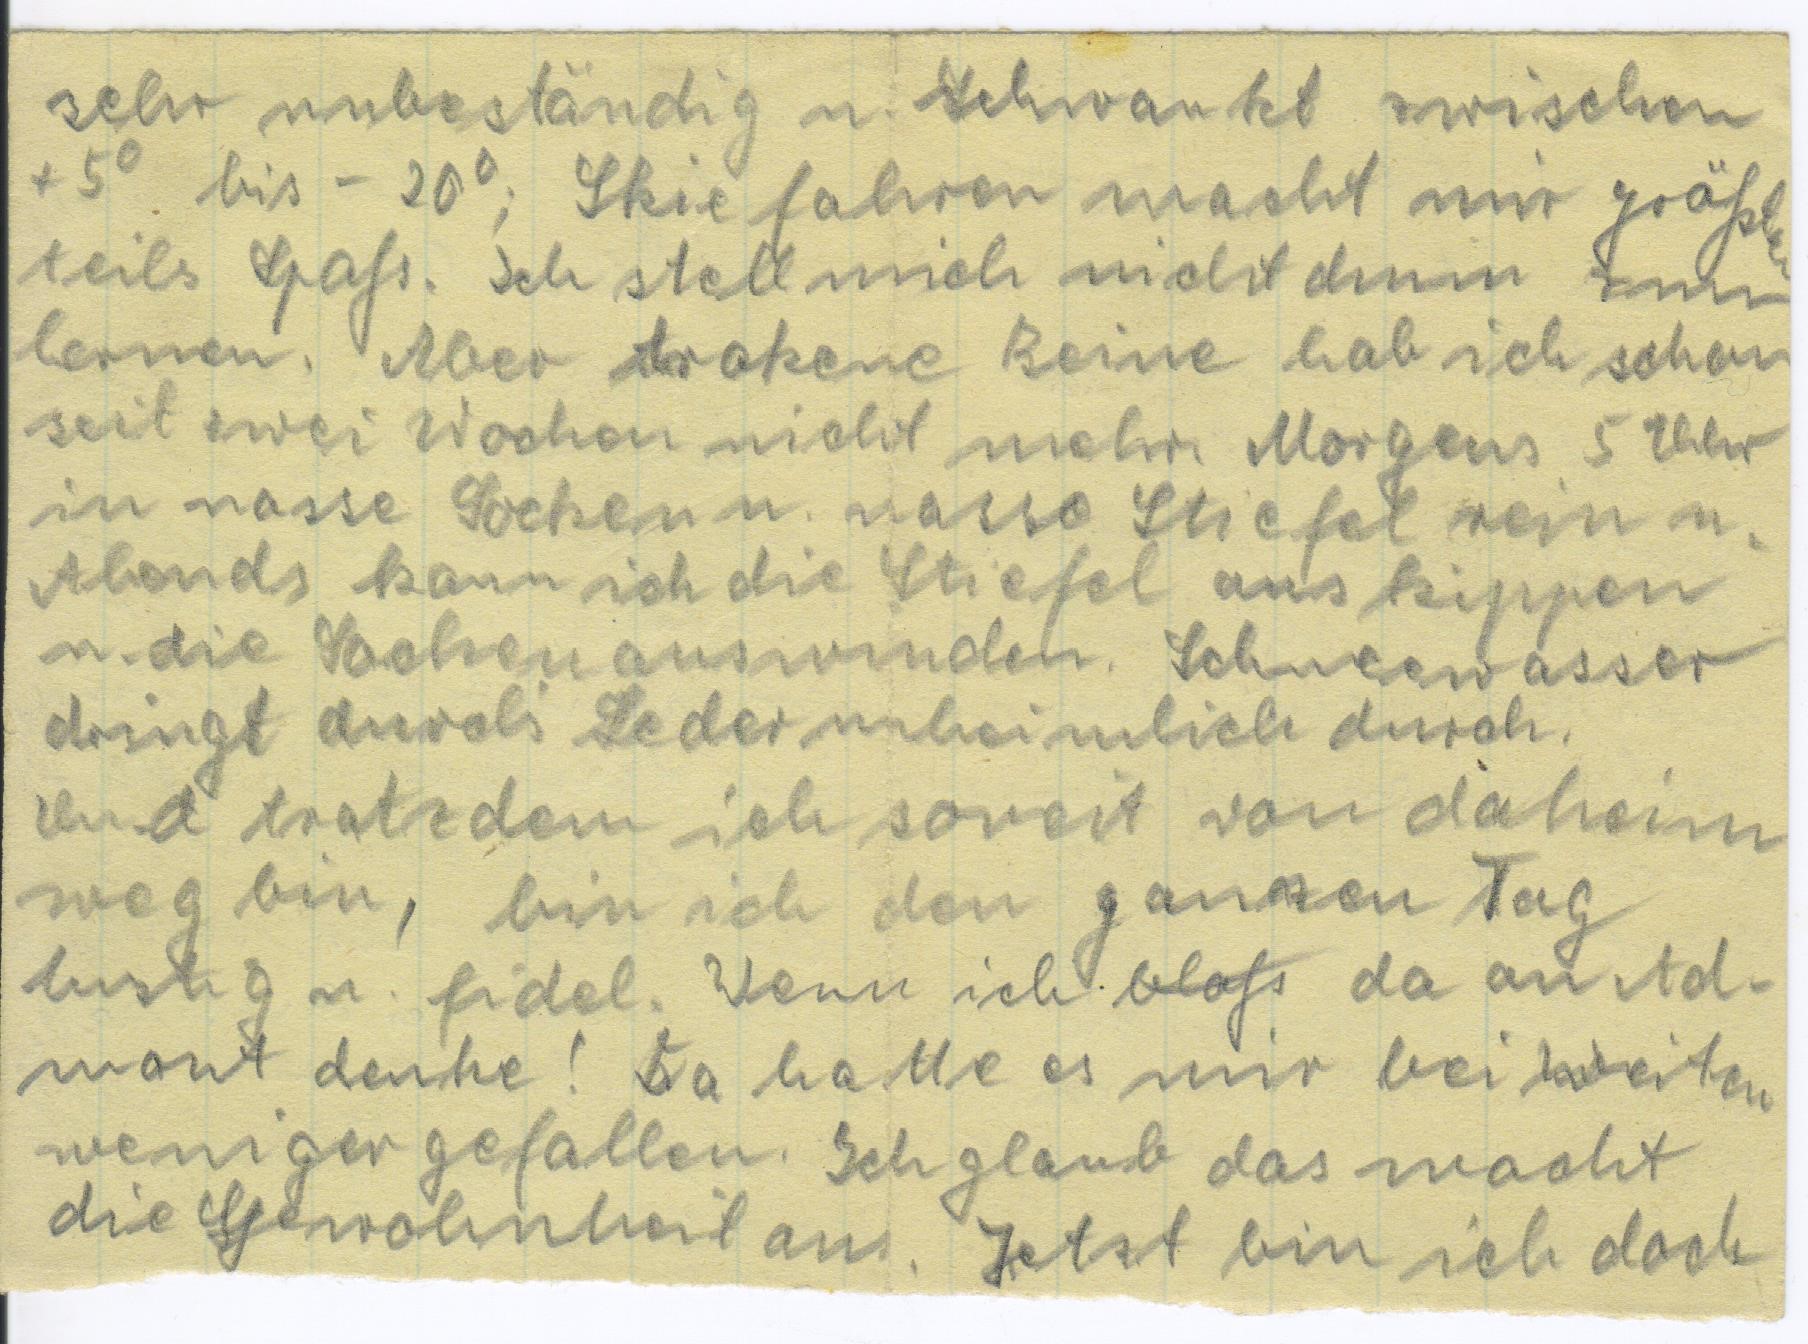 sehr unbeständig u. Schwankt zwischen
+5° bis -20°; Skie fahren macht mir größten
teils Spaß. Ich stell mich nicht dumm zum
lernen. Aber trokene Beine hab ich schon
seit zwei Wochen nicht mehr. Morgens 5 Uhr
in nasse Socken u. nasse Stiefel rein u.
Abends kann ich die Stiefel aus kippen
u. die Socken auswinden. Schneewasser
dringt durch's Leder unheimlich durch.
Und trotzdem ich soweit von daheim
weg bin, bin ich den ganzen Tag
lustig u. fidel. Wenn ich bloß da an Ad-
mont denke! Da hatte es mir bei weiten
weniger gefallen. Ich glaub das macht
die Gewohnheit aus. Jetzt bin ich doch